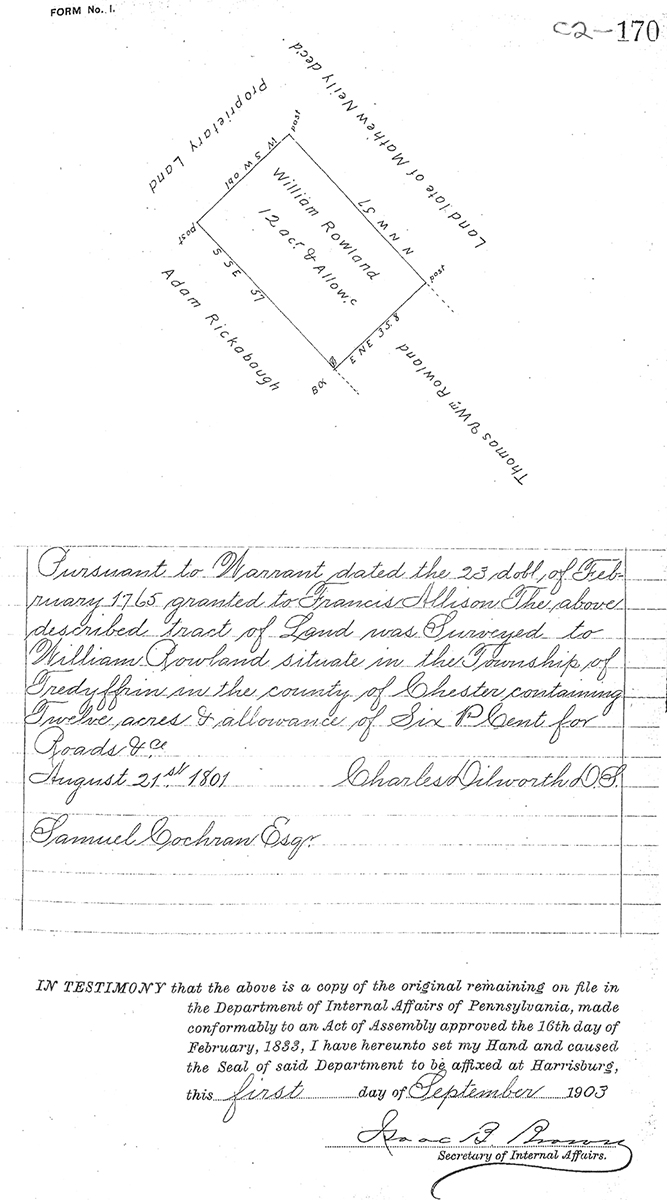 FORM No. 1.
C2-170
Proprietary Land
Land late of Mathew Neily dec'd
post
W S W
post
William Rowland
12 acr. & Allow.c
N N W 57
post
S S E 57
E N E 35.8
BO
Adam Rickabaugh
Thomas & Wm Rowland
Pursuant to Warrant dated the 23 dobl, of Feb-
ruary 1765 granted to Francis Allison The above
described tract of Land was Surveyed to
William Rowland situate in the Township of
Tredyffrin in the county of Chester containing
Twelve acres & allowance of Six P Cent for
Roads &ce
August 21st 1801 Charles Dilworth D.S.
Samuel Cochran Esqr.
IN TESTIMONY that the above is a copy of the original remaining on file in
the Department of Internal Affairs of Pennsylvania, made
conformably to an Act of Assembly approved the 16th day of
February, 1833, I have hereunto set my Hand and caused
the Seal of said Department to be affixed at Harrisburg,
this first day of September 1903
Isaac B. Brown
Secretary of Internal Affairs.